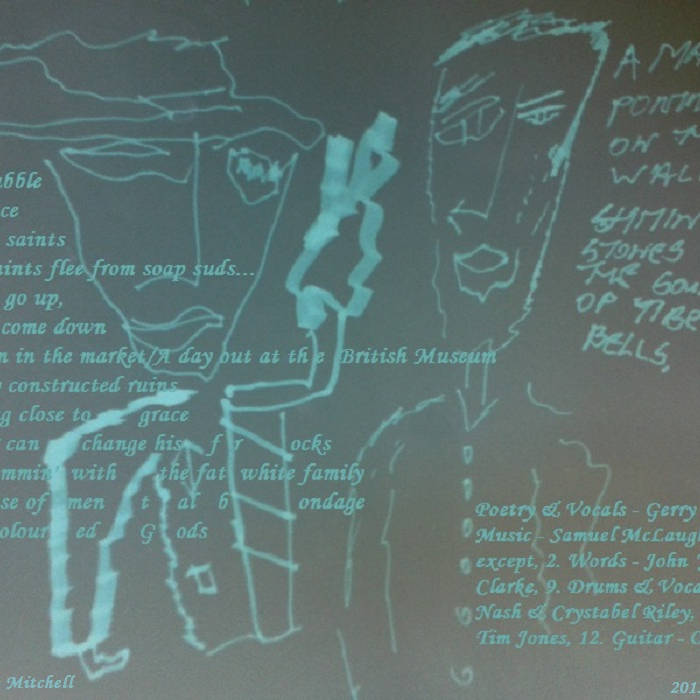 bble
ce
saints
ints flee from soap suds...
go up,
come down
n in the market/A day out at th e British Museum
constructed ruins
g close to grace
can change his f r ocks
mmin' with the fat white family
se of men t al b ondage
olour ed G ods
Mitchell
A MA
PON
ON T
WALL
STONES
THE GON
OF TIBE
BELLS,
Poetry & Vocals - Gerry
Music - Samuel McLaug
except, 2. Words - John
Clarke, 9. Drums & Voca
Nash & Crystabel Riley,
Tim Jones, 12. Guitar - 
201